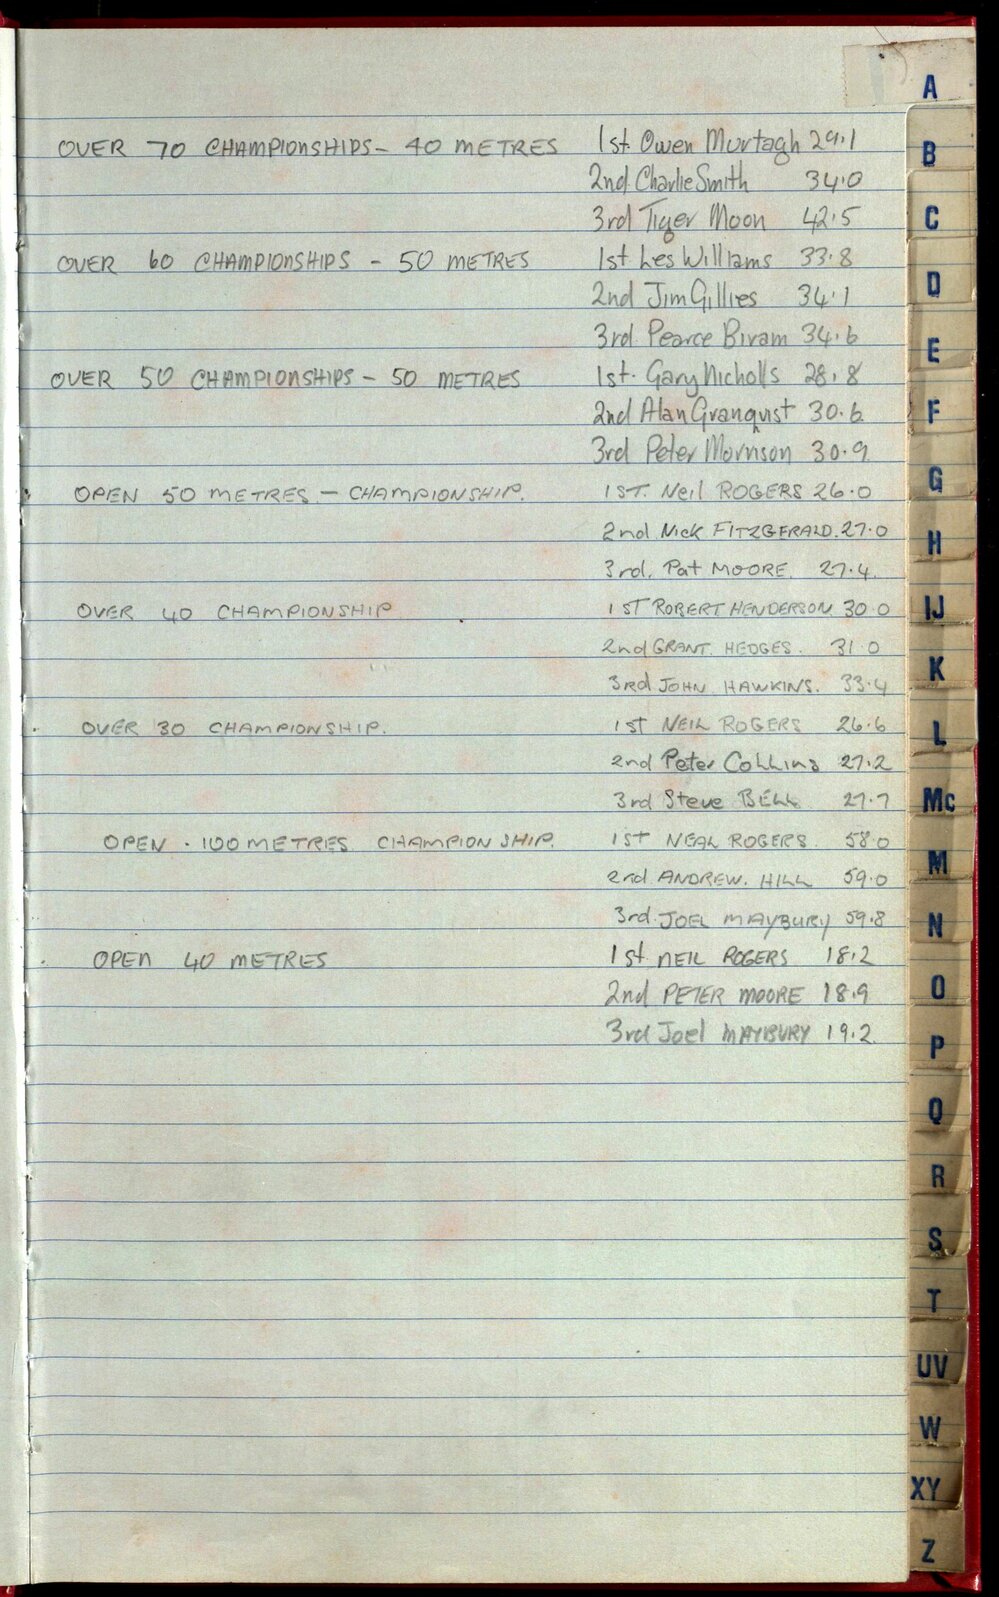 OVER 70 CHAMPIONSHIPS - 40 METRES 1st Owen Murtagh 29.1
2nd Charlie Smith 34.0
3rd Tiger Moon 42.5
OVER 60 CHAMPIONSHIPS - 50 METRES 1st Les Williams 33.8
2nd Jim Gillies 34.1
3rd Pearce Biram 34.6
OVER 50 CHAMPIONSHIPS - 50 METRES 1st. Gary Nicholls 28.8
2nd Alan Granqvist 30.6
3rd Peter Morrison 30.9
OPEN 50 METRES - CHAMPIONSHIP. 1ST. Neil ROGERS 26.0
2nd Nick FITZGERALD. 27.0
3rd. Pat MOORE. 27.4
OVER 40 CHAMPIONSHIP 1ST ROBERT HENDERSON 30.0
2nd GRANT. HEDGES. 31.0
3rd JOHN HAWKINS. 33.4
OVER 30 CHAMPIONSHIP. 1ST NEIL ROGERS 26.6
2nd Peter Collins 27.2
3rd Steve BELL 27.7
OPEN . 100 METRES CHAMPIONSHIP. 1ST NEAL ROGERS. 58.0
2nd ANDREW. HILL 59.0
3rd. JOEL MAYBURY 59.8
OPEN 40 METRES 1st NEIL ROGERS 18.2
2nd PETER MOORE 18.9
3rd Joel MAYBURY 19.2
A
B
C
D
E
F
G
H
IJ
K
L
Mc
M
N
O
P
Q
R
S
T
UV
W
XY
Z